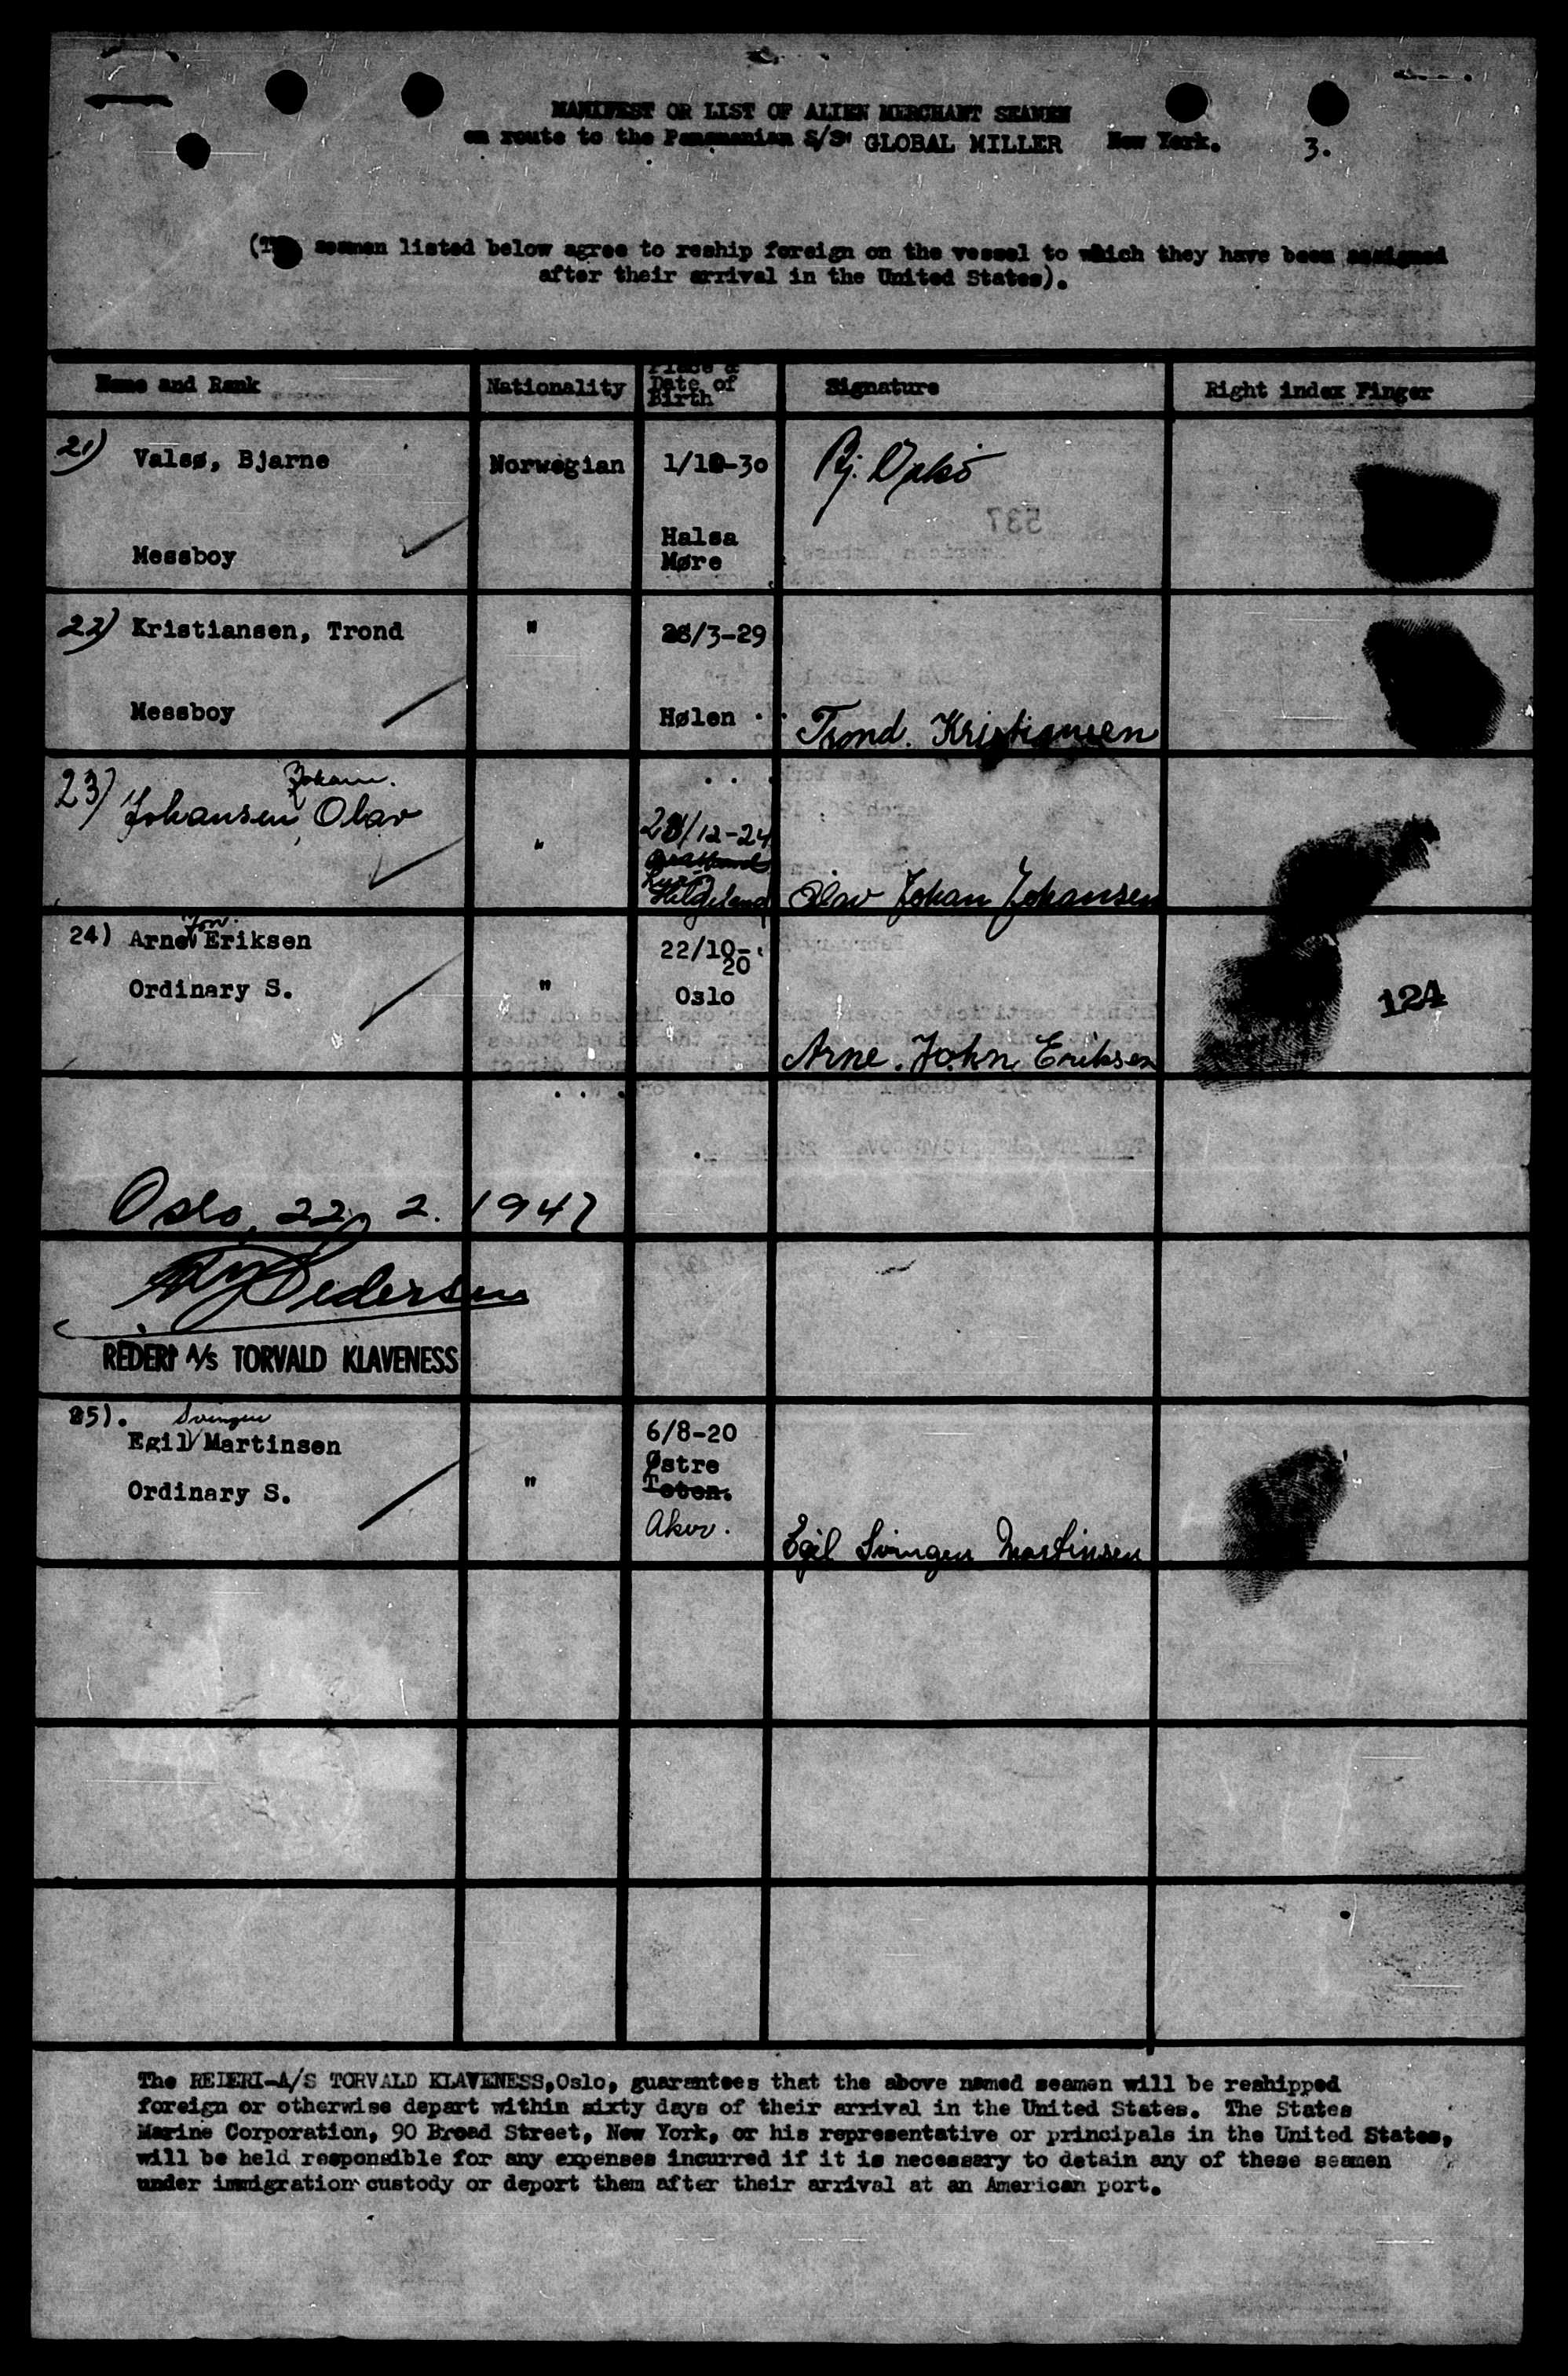 MANIFEST OR LIST OF ALIEN MERCHANT SEAMEN
en route to the Panamanian S/S GLOBAL MILLER New York. 3.
(The seamen listed below agree to reship foreign on the vessel to which they have been assigned
after their arrival in the United States).
Name and Rank Nationality Place & Date of Birth Signature Right index Finger
21) Valsø, Bjarne Norwegian 1/10-30 Bj. Valsö
537
Messboy Halsa
Møre
22) Kristiansen, Trond " 28/3-29
Messboy Hølen Trond. Kristiansen
Johan.
23) Johansen, Olav " /12-24
Olav Johan Johansen
Jon.
24) Arne Eriksen 22/10-20
Ordinary S. " Oslo 124
Arne. John Eriksen
Oslo, 22. 2. 1947
Pedersen
REDERI A/S TORVALD KLAVENESS
25). Svingen
Egil Martinsen 6/8-20
Østre
Ordinary S. " Toten.
Aker.
Egil Svingen Martinsen
The REDERI-A/S TORVALD KLAVENESS, Oslo, guarantees that the above named seamen will be reshipped
foreign or otherwise depart within sixty days of their arrival in the United States. The States
Marine Corporation, 90 Broad Street, New York, or his representative or principals in the United States,
will be held responsible for any expenses incurred if it is necessary to detain any of these seamen
under immigration custody or deport them after their arrival at an American port.